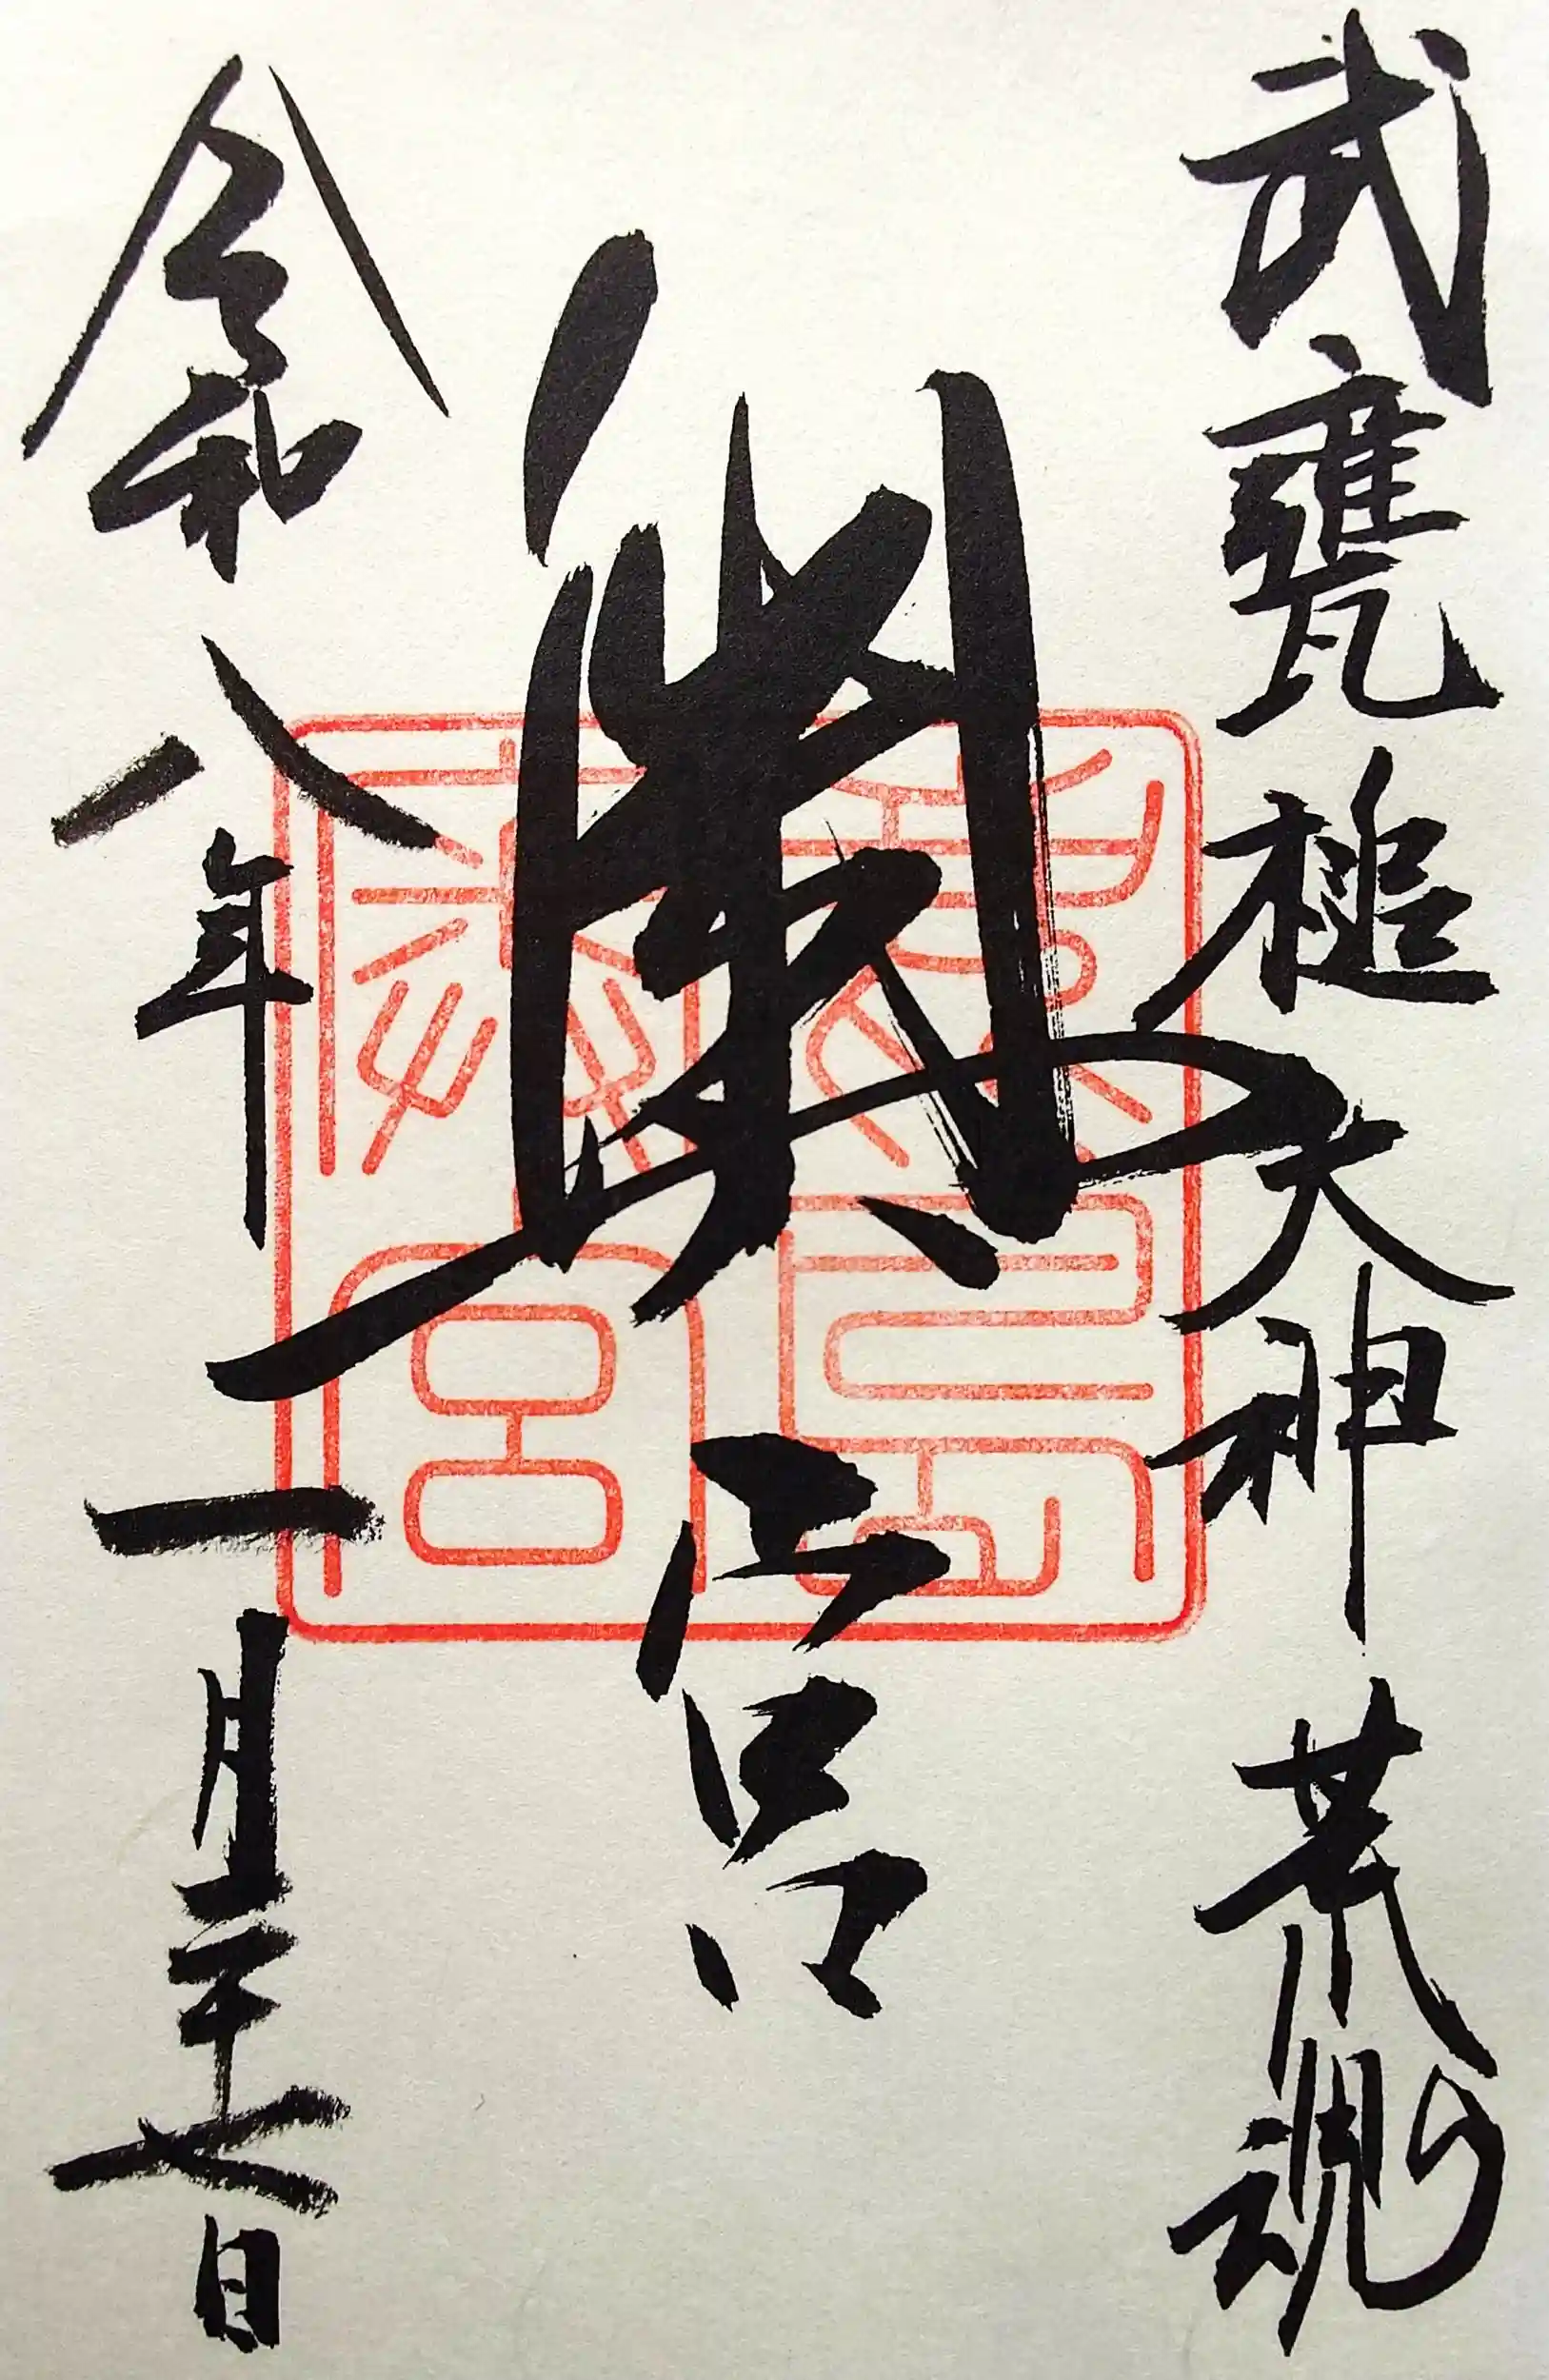 武甕槌大神 荒魂
奥宮
令和八年一月二十七日
鹿島神宮